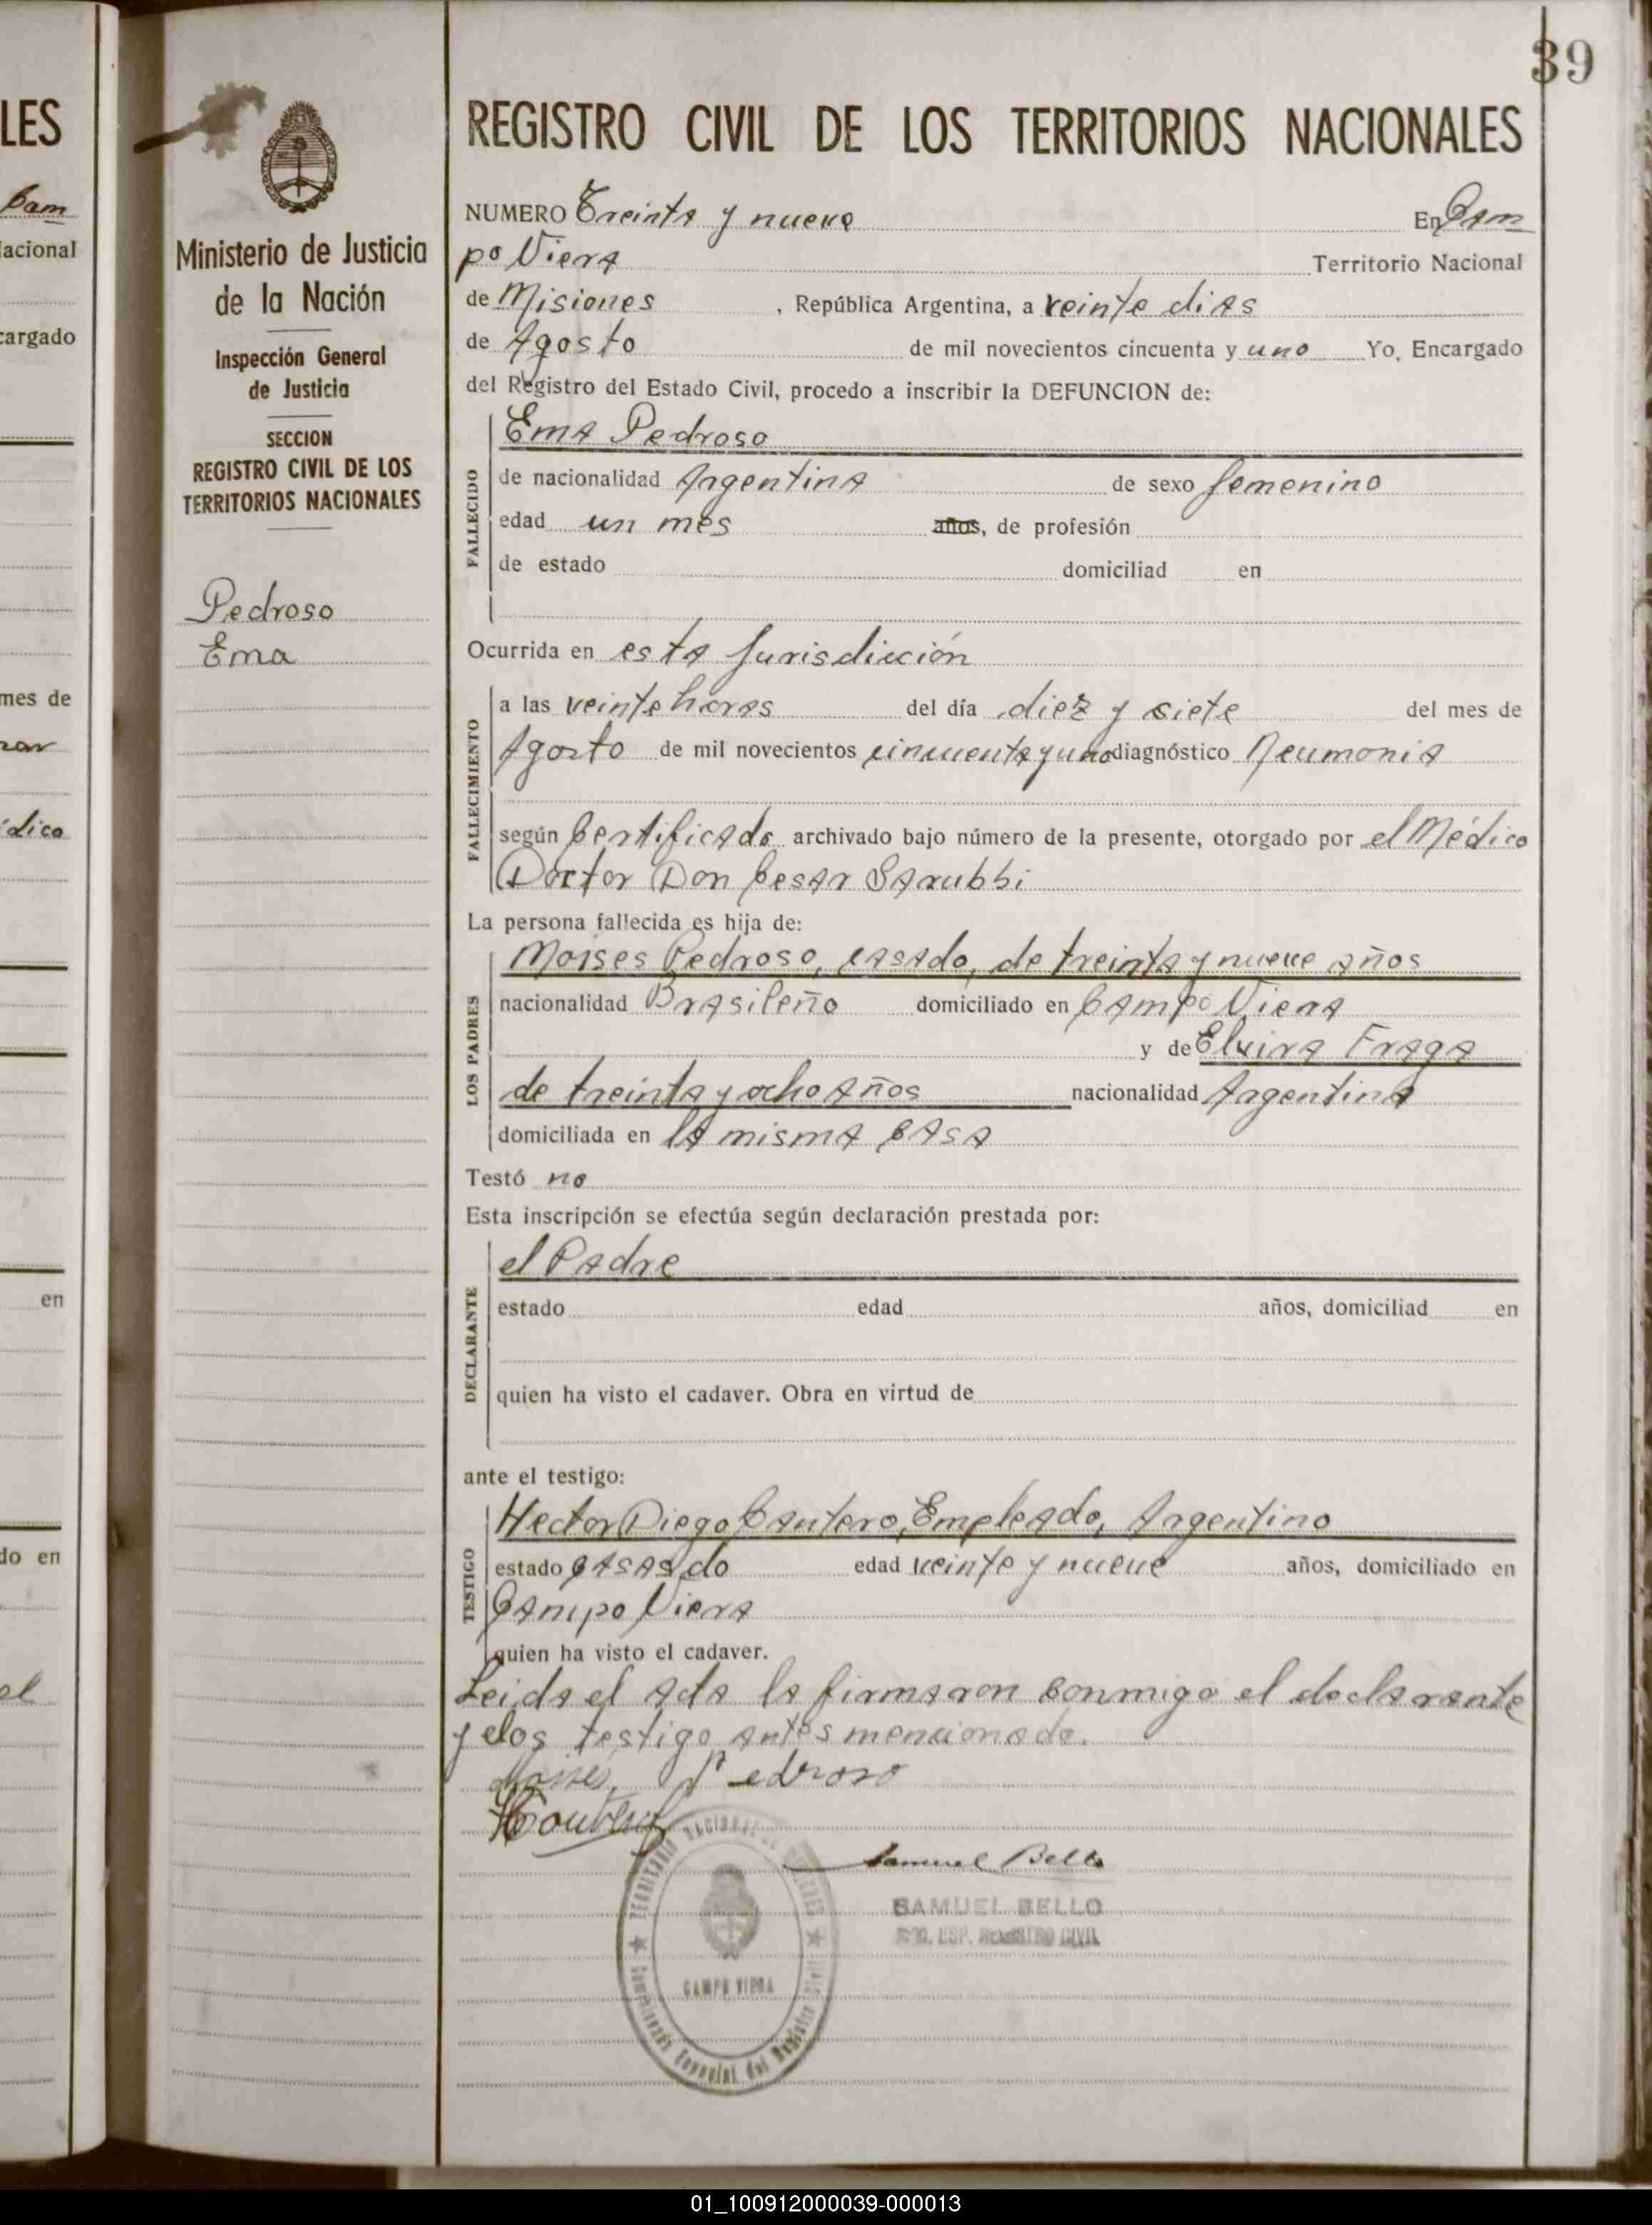 39
LES
Cam
Nacional
cargado
mes de
dico
en
do en
el
Ministerio de Justicia
de la Nación
Inspección General
de Justicia
SECCION
REGISTRO CIVIL DE LOS
TERRITORIOS NACIONALES
Pedroso
Ema
REGISTRO CIVIL DE LOS TERRITORIOS NACIONALES
NUMERO Treinta y nueve En Cam
po Viera Territorio Nacional
de Misiones, República Argentina, a veinte dias
de Agosto de mil novecientos cincuenta y uno Yo, Encargado
del Registro del Estado Civil, procedo a inscribir la DEFUNCION de:
FALLECIDO
Ema Pedroso
de nacionalidad Argentina de sexo femenino
edad un mes años, de profesión
de estado domiciliad en
Ocurrida en esta Jurisdicción
FALLECIMIENTO
a las veinte horas del día diez y siete del mes de
Agosto de mil novecientos cincuenta y uno diagnóstico Neumonia
según Certificado archivado bajo número de la presente, otorgado por el Médico
Doctor Don Cesar Sarubbi
La persona fallecida es hija de:
LOS PADRES
Moises Pedroso, casado, de treinta y nueve años
nacionalidad Brasileño domiciliado en Campo Viera
y de Elvira Fraga
de treinta y ocho años nacionalidad Argentina
domiciliada en la misma casa
Testó no
Esta inscripción se efectúa según declaración prestada por:
DECLARANTE
el Padre
estado edad años, domiciliad en
quien ha visto el cadaver. Obra en virtud de
ante el testigo:
TESTIGO
Hector Diego Cantero, Empleado, Argentino
estado casasdo edad veinte y nueve años, domiciliado en
Campo Viera
quien ha visto el cadaver.
Leida el acta la firmaron conmigo el declarante
y elos testigo antes mencionado.
Moises Pedroso
HCantero
Samuel Bello
SAMUEL BELLO
ENC. ESP. REGISTRO CIVIL
TERRITORIO NACIONAL DE MISIONES
CAMPO VIERA
Comisionado Especial del Registro Civil
01_100912000039-000013